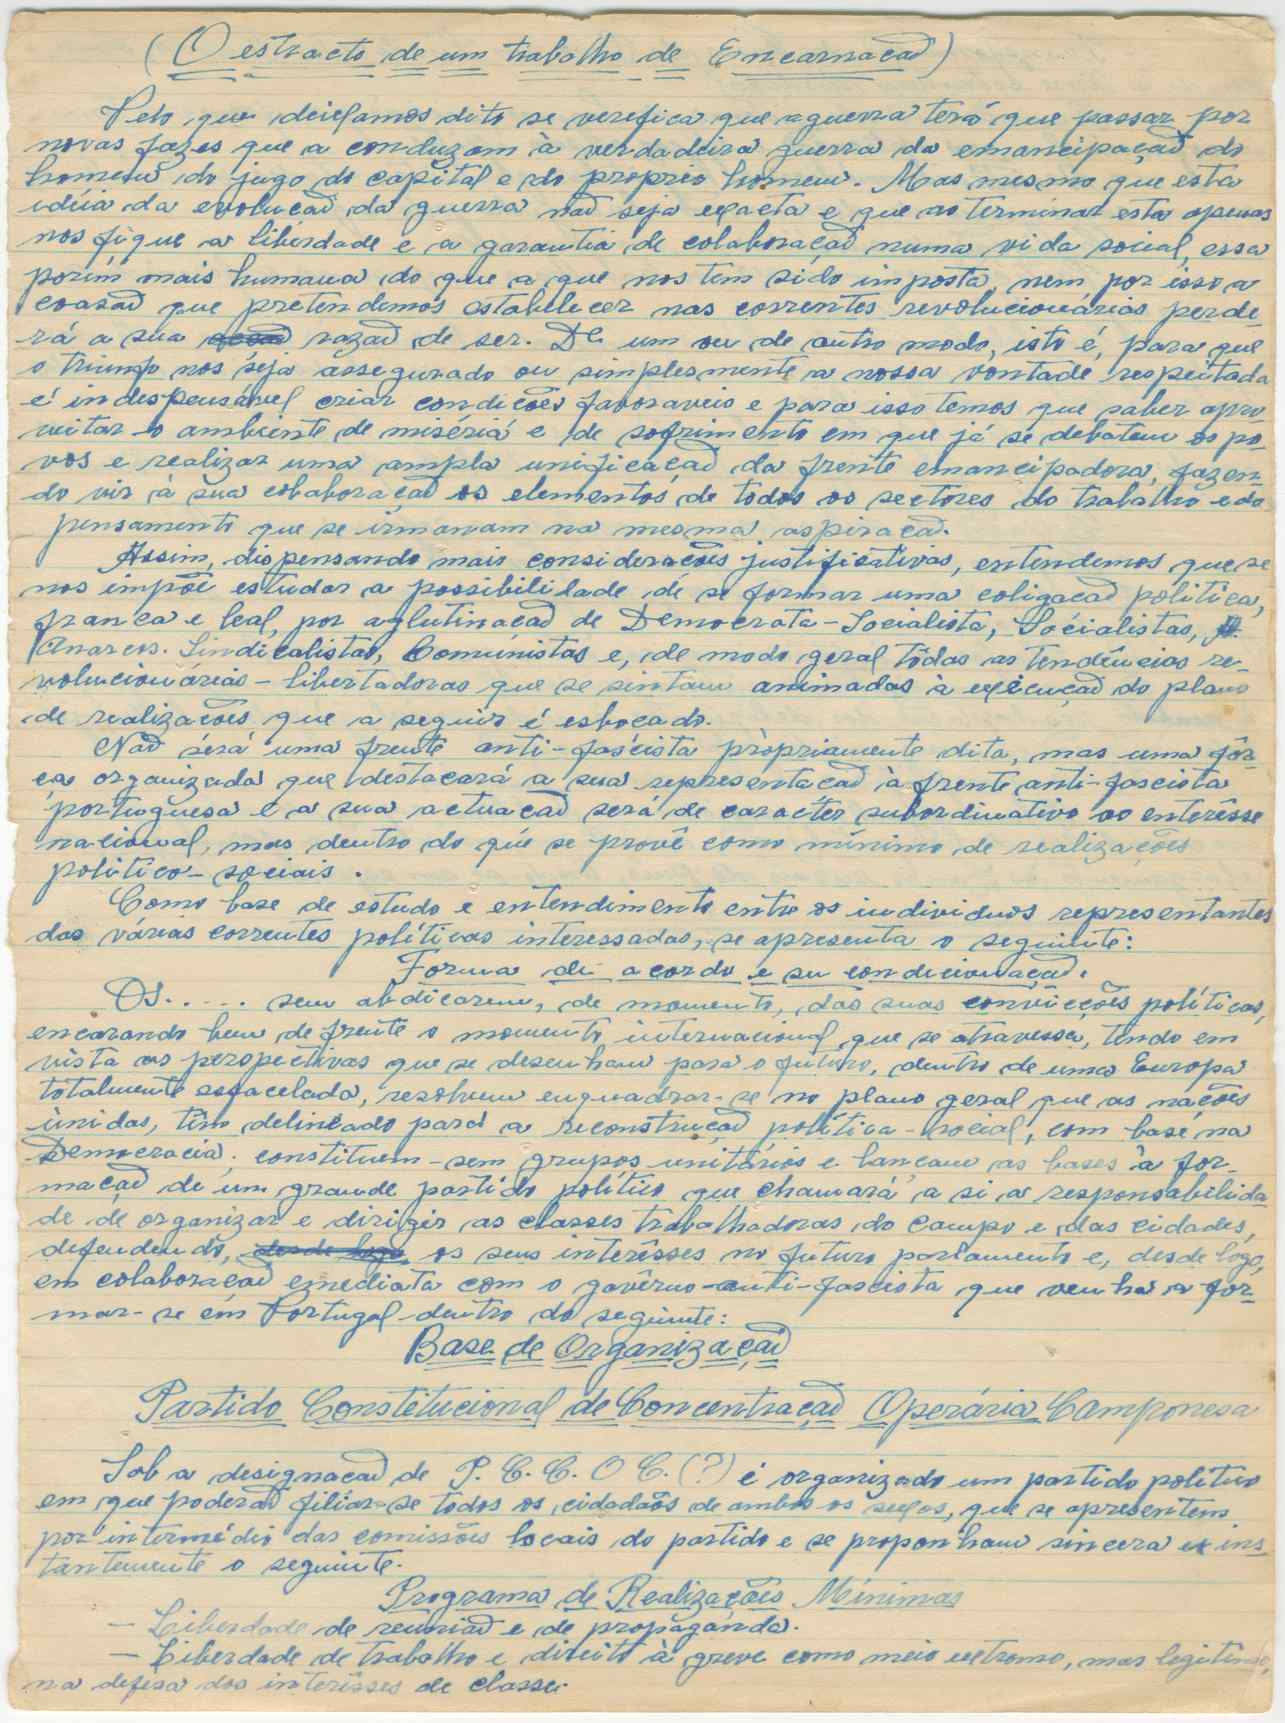 (O estracto de um trabalho de Encarnação)
Pelo que deiçamos dito se verefica que a guerra terá que passar por
novas fazes que a conduzam à verdadeira guerra da emancipação do
homem do jugo do capital e do proprio homem. Mas mesmo que esta
idéia da evolução da guerra não seja exacta e que ao terminar esta apenas
nos fique a liberdade e a garantia de colaboração numa vida social, essa
porém mais humana do que a que nos tem sido imposta, nem por isso a
coasão que pretendemos estabelecer nas correntes revolucionárias perde-
rá a sua razão de ser. De um ou de outro modo, isto é, para que
o triunfo nos seja assegurado ou simplesmente a nossa vontade respeitada
é indespensável criar condições favoraveis e para isso temos que saber apro
veitar o ambiente de miséria e de sofrimento em que já se debatem os po-
vos e realizar uma ampla unificação da frente emancipadora, fazen-
do vir à sua colaboração os elementos de todos os sectores do trabalho e do
pensamento que se irmanam na mesma aspiração.
Assim, dispensando mais considerações justificativas, entendemos que se
nos impõe estudar a possibilidade de se formar uma coligação politica,
franca e leal, por aglutinação de Democrata-Socialista, Socialistas,
Anarcos. Sindicalistas, Comunistas e, de modo geral tôdas as tendências re-
volucionárias - libertadoras que se sintam animadas à execução do plano
de realizações que a seguir é esboçado.
Não será uma frente anti-fascista pròpriamente dita, mas uma fôr-
ça organizada que destacará a sua representação à frente anti-fascista
portuguesa e a sua actuação será de caracter subordinativo ao enterêsse
nacional, mas dentro do que se provê como mínimo de realizações
politico-sociais.
Como base de estudo e entendimento entre os individuos representantes
das várias correntes políticas interessadas, se apresenta o seguinte:
Forma de acordo e su condicionação.
Os..... sem abdicarem, de momento, das suas convicções políticas,
encarando bem de frente o momento internacional que se atravessa, tendo em
vista as perspectivas que se desenham para o futuro, dentro de uma Europa
totalmente esfacelada, resolvem enquadrar-se no plano geral que as nações
ùnidas, têm delineado para a reconstrução política-social, com base na
Democracia; constituem-sem grupos unitários e lançam as bases à for-
mação de um grande partido político que chamará a si a responsabilida
de de organizar e dirigir as classes trabalhadoras do campo e das cidades,
defendendo, desde logo, os seus interêsses no futuro parlamento e, desde lôgo,
em colaboração emediata com o govêrno-anti-fascista que venha a for-
mar-se em Portugal dentro do seguinte:
Base de Organização
Partido Constitucional de Concentração Operária Camponesa
Sob a designação de P. C. C. O C. (?) é organizado um partido político
em que poderão filiar-se todos os cidadãos de ambos os seços, que se apresentem
por intermédio das comissões locais do partido e se proponham sincera e ins-
tantemente o seguinte.
Programa de Realizações Mínimas
- Liberdade de reunião e de propaganda.
- Liberdade de trabalho e direito à greve como meio extremo, mas legítimo,
na defesa dos interêsses de classe.